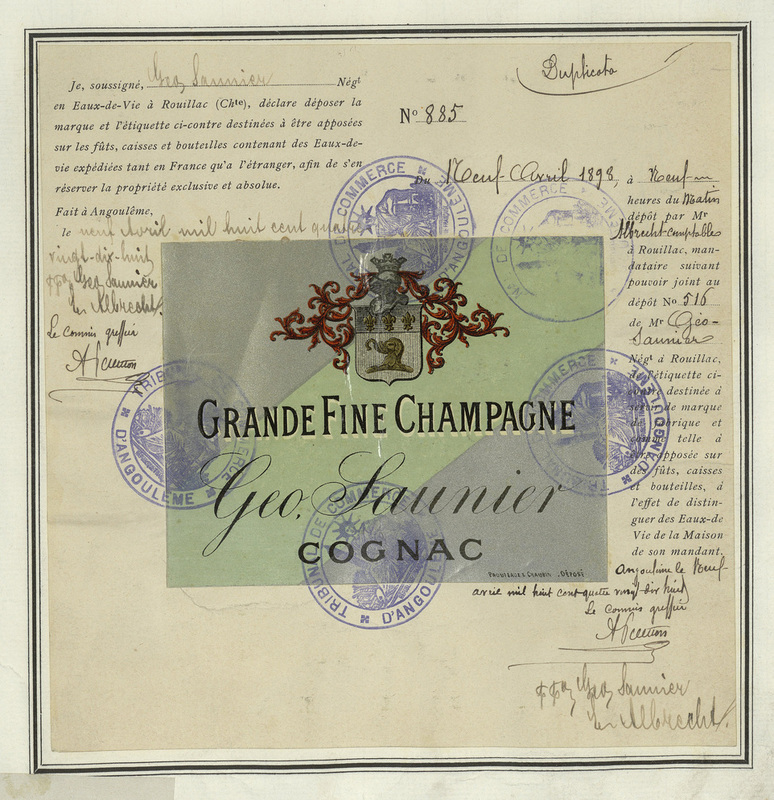 Duplicata
Je, soussigné, Geo Saunier Négt
en Eaux-de-Vie à Rouillac (Chte), déclare déposer la
marque et l'étiquette ci-contre destinées à être apposées
sur les fûts, caisses et bouteilles contenant des Eaux-de-
vie expédiées tant en France qu'a l'étranger, afin de s'en
réserver la propriété exclusive et absolue.
Fait à Angoulême,
le neuf Avril mil huit cent quatre
vingt-dix-huit
ppon Geo Saunier
Albrecht
Le commis greffier
No 885
Du Neuf Avril 1898, à Neuf
heures du Matin
dépôt par Mr
Albrecht comptable
à Rouillac, man-
dataire suivant
pouvoir joint au
dépôt No 516
de Mr Géo-
Saunier
Négt à Rouillac,
de l'étiquette ci-
contre destinée à
servir de marque
de fabrique et
comme telle à
être apposée sur
des fûts, caisses
et bouteilles, à
l'effet de distin-
guer des Eaux-de
Vie de la Maison
de son mandant.
Angoulême le Neuf
avril mil huit cent quatre vingt-dix huit
Le commis greffier
ppon Geo Saunier
Albrecht
GRANDE FINE CHAMPAGNE
Geo. Saunier
COGNAC
DÉPOSÉ
TRIBUNAL DE COMMERCE D'ANGOULÊME
DE COMMERCE
TRIBUNAL DE COMMERCE D'ANGOULÊME
TRIBUNAL DE COMMERCE D'ANGOULÊME
TRIBUNAL DE COMMERCE D'ANGOULÊME